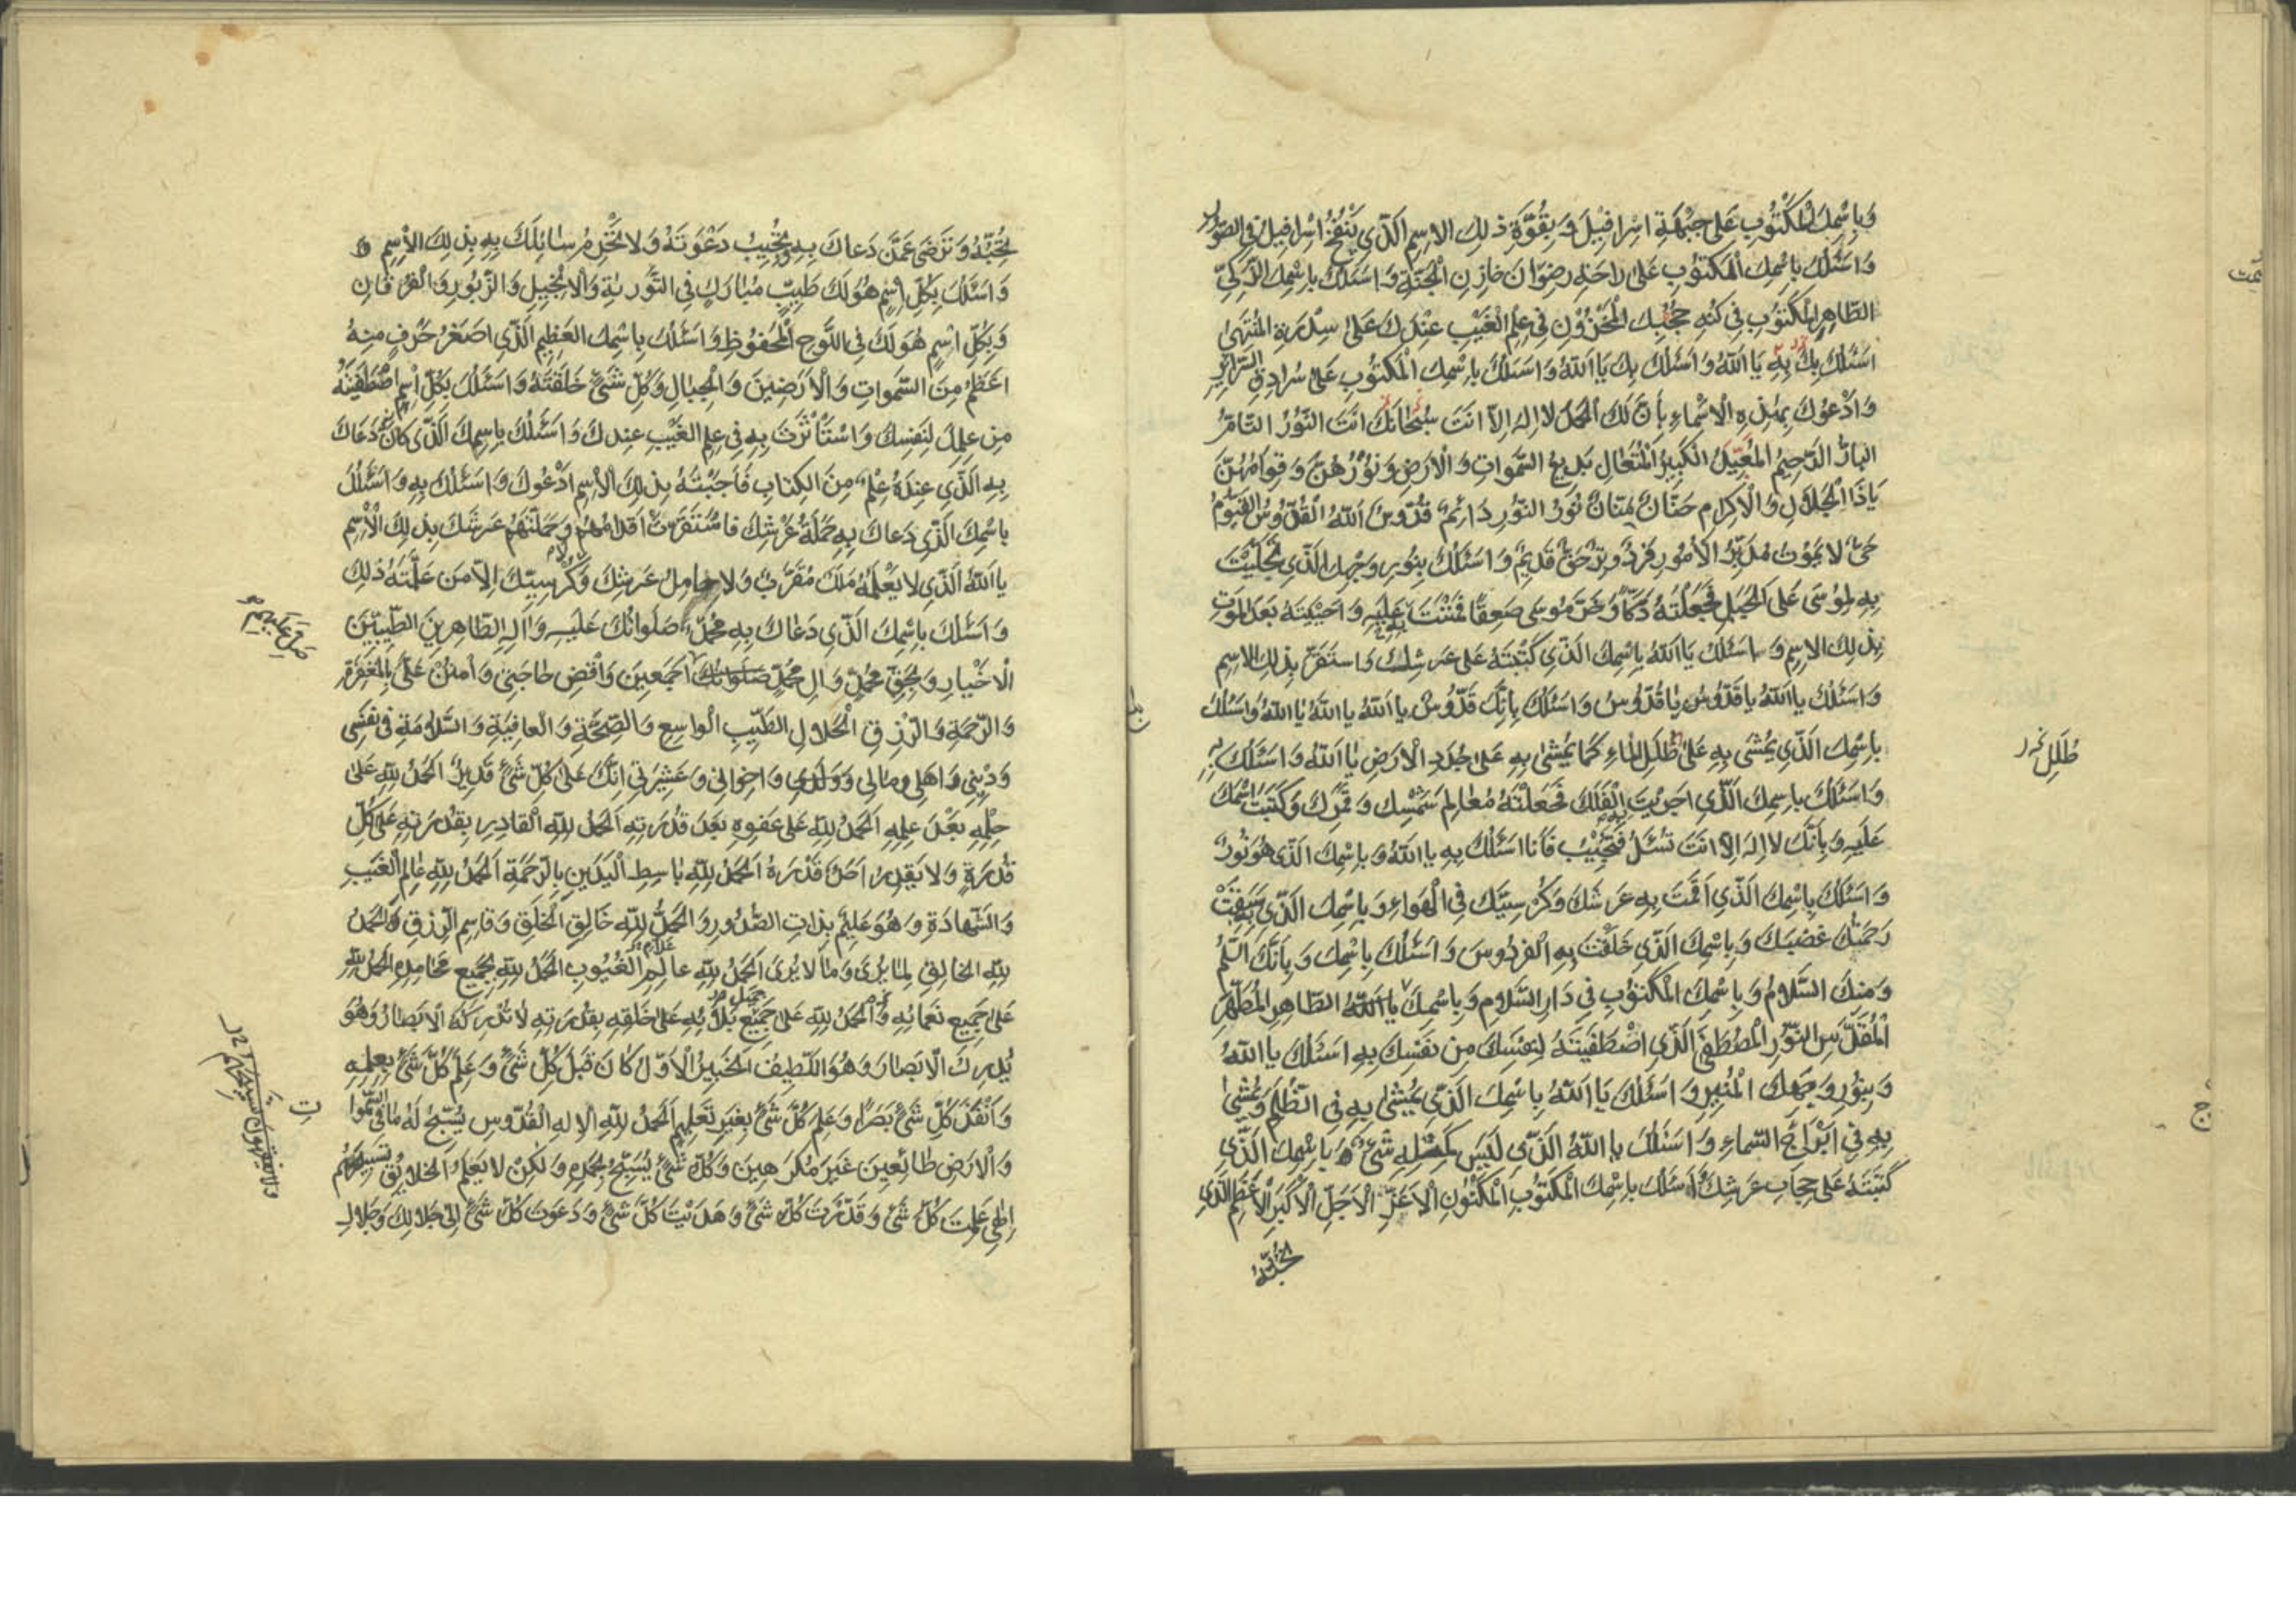 وَبِاسْمِكَ الْمَكْتُوبِ عَلَى جَبْهَةِ اِسْرَافِيلَ وَ بِقُوَّةِ ذٰلِكَ الاِسمِ الَّذِي يَنْفُخُ اِسْرافِيلُ فِي الصُّورِ
وَاَسْئَلُكَ بِاسْمِكَ الْمَكتُوبِ عَلىٰ راحَةِ رِضْوَانَ خازِنِ الْجَنَّةِ وَاَسئَلُكَ بِاسْمِكَ الزَّكِيِّ
الطَّاهِرِ الْمَكْتُوبِ فِي كُنْهِ حُجُبِكَ الْمَخْزُوْنِ فِي عِلْمِ الْغَيْبِ عِنْدَكَ عَلىٰ سِدْرَةِ الْمُنْتَهىٰ
اَسْئَلُكَ بِكَ بِهِ يَا اَللهُ وَاَسْئَلُكَ بِكَ يَا اَللهُ وَاَسئَلُكَ بِاسْمِكَ الْمَكتُوبِ عَلىٰ سُرادِقِ السَّرَائِرِ
وَاَدْعُوكَ بِهٰذِهِ الْاَسْماءِ بِأَنَّ لَكَ الْحَمدَ لا اِلهَ اِلّا اَنتَ سُبْحَانَكَ اَنْتَ النُّوْرُ التّامُّ
البارُّ الرَّحِيمُ المُعِيدُ الْكَبِيرُ الْمُتَعَالِ بَدِيعُ السَّمٰواتِ وَالْاَرَضِ وَنُوْرُهُنَّ وَقِوَامُهُنَّ
يَاذَا الْجَلَالِ وَالْاِكرامِ حَنَّانٌ مَنّانٌ نُورُ النُّورِ دَائِمٌ قُدُّوسٌ اَللهُ الْقُدُّوسُ الْقَيُّومُ
حَيٌّ لا يَمُوْتُ مُدَبِّرُ الْاُمُورِ فَرْدٌ وِتْرٌ حَقٌّ قَدِيْمٌ وَاَسْئَلُكَ بِنُورِ وَجْهِكَ الَّذِي تَجَلَّيْتَ
بِهِ لِمُوْسَى عَلَى الْجَبَلِ فَجَعَلْتَهُ دَكّاً وَخَرَّ مُوسى صَعِقاً فَمَنَنْتَ بِهِ عَلَيْهِ وَاَحْيَيتَهُ بَعدَ الْمَوتِ
بِذٰلِكَ الاِسمِ وَ اَسْئَلُكَ يَا اَللهُ بِاسْمِكَ الَّذِي كَتَبْتَهُ عَلىٰ عَرشِكَ وَاستَقَرَّ بِذٰلِكَ الاِسمِ
وَاَسْئَلُكَ يا اَللهُ يا قُدُّوسُ يا قُدُّوسُ وَاَسْئَلُكَ بِاَنَّكَ قُدُّوسٌ يا اَللهُ يا اَللهُ يا اَللهُ وَاَسئَلُكَ
بِاسْمِكَ الَّذِي يُمْشٰى بِهِ عَلىٰ ظُلَلِ الْمَاءِ كَمَا يُمْشٰى بِهِ عَلىٰ جُدَدِ الْاَرَضِ يا اَللهُ وَاَسْئَلُكَ بِهِ
طُلَلِ خ
وَاَسْئَلُكَ بِاسمِكَ الَّذِي اَجرَيْتَ بِهِ الْفَلَكَ فَجَعَلْتَهُ مَعَالِمَ شَمْسِكَ وَقَمَرِكَ وَكَتَبْتَ اسْمَكَ
عَلَيهِ وَبِاَنَّكَ لا اِلهَ اِلّا اَنتَ تُسْئَلُ فَتُجِيْبُ فَاَنَا اَسْئَلُكَ بِهِ يا اَللهُ وَ بِاسْمِكَ الَّذِي هُوَ نُورٌ
وَاَسْئَلُكَ بِاسمِكَ الَّذِي اَقَمْتَ بِهِ عَرشَكَ وَكُرْسِيَّكَ فِي الْهَواءِ وَ بِاسْمِكَ الَّذِي سَبَقَتْ بِهِ
رَحمَتُكَ غَضَبَكَ وَبِاسْمِكَ الَّذِي خَلَقْتَ بِهِ الْفِردَوسَ وَاَسْئَلُكَ بِاسْمِكَ وَبِاَنَّكَ السَّلَامُ
وَمِنكَ السَّلامُ وَبِاسْمِكَ الْمَكتُوْبِ فِي دَارِ السَّلامِ وَبِاسْمِكَ يا اَللهُ الطَّاهِرِ الْمُطَهَّرِ
الْمُقَدَّسِ النُّوْرِ الْمُصْطَفَى الَّذِي اصْطَفَيْتَهُ لِنَفْسِكَ مِن نَفسِكَ بِهِ اَسْئَلُكَ يا اَللهُ
وَبِنُورِ وَجهِكَ الْمُنِيرِ وَ اَسْئَلُكَ يَا اَللهُ بِاسْمِكَ الَّذِي يُمْشىٰ بِهِ فِي الظُّلَمِ وَيُمْشىٰ
بِهِ فِي اَبْرَاجِ السَّماءِ وَاَسْئَلُكَ يا اَللهُ الَّذِي لَيْسَ كَمِثْلِهِ شَيْءٌ وَ بِاسْمِكَ الَّذِي
كَتَبْتَهُ عَلىٰ حِجَابِ عَرشِكَ اَسئَلُكَ بِاسْمِكَ الْمَكتُوبِ الْمَكْنُوْنِ الْاَعَزِّ الْاَجَلِّ الْاَكْبَرِ الْاَعْظَمِ الَّذِي
تُحِبُّهُ
تُحِبُّهُ وَتَرْضٰى عَمَّنْ دَعاكَ بِهِ وَتُجِيْبُ دَعْوَتَهُ وَلا تَحْرِمُ سائِلَكَ بِهِ بِذٰلِكَ الْاِسمِ
وَاَسْئَلُكَ بِكُلِّ اسْمٍ هُوَ لَكَ طَيِّبٍ مُبَارَكٍ فِي التَّوْرٰيةِ وَالْاِنْجِيلِ وَالزَّبُورِ وَالْفُرقَانِ
وَبِكُلِّ اسْمٍ هُوَ لَكَ فِي اللَّوحِ الْمَحفُوظِ وَاَسْئَلُكَ بِاسْمِكَ الْعَظِيمِ الَّذِي اَصغَرُ حَرْفٍ مِنهُ
اَعظَمُ مِنَ السَّمٰواتِ وَالْاَرَضِيْنَ وَالْجِبَالِ وَكُلِّ شَيْءٍ خَلَقْتَهُ وَاَسْئَلُكَ بِكُلِّ اسْمٍ اصْطَفَيْتَهُ
مِن عِلمِكَ لِنَفسِكَ وَاسْتَأْثَرْتَ بِهِ فِي عِلمِ الْغَيْبِ عِندَكَ وَاَسْئَلُكَ بِاسمِكَ الَّذِي كانَ دَعَاكَ
بِهِ الَّذِي عِندَهُ عِلْمٌ مِنَ الكِتابِ فَاَجَبْتَهُ بِذٰلِكَ الْاِسمِ اَدْعُوكَ وَاَسْئَلُكَ بِهِ وَاَسْئَلُكَ
بِاسْمِكَ الَّذِي دَعَاكَ بِهِ حَمَلَةُ عَرْشِكَ فَاسْتَقَرَّتْ اَقْدامُهُمْ وَحَمَّلْتَهُمْ عَرشَكَ بِذٰلِكَ الْاِسمِ
يا اَللهُ الَّذِي لا يَعْلَمُهُ مَلَكٌ مُقَرَّبٌ وَلا حامِلُ عَرشِكَ وَلا كُرْسِيِّكَ اِلّا مَن عَلَّمْتَهُ ذٰلِكَ
وَاَسْئَلُكَ بِاسْمِكَ الَّذِي دَعَاكَ بِهِ مُحَمَّدٌ صَلَواتُكَ عَلَيهِ وَاٰلِهِ الطّاهِرِينَ الطَّيِّبِيْنَ
الْاَخْيارِ وَبِحَقِّ مُحَمَّدٍ وَالِ مُحَمَّدٍ صَلَوَاتُكَ اَجمَعِينَ وَاقْضِ حَاجَتِي وَامْنُنْ عَلَيَّ بِالْمَغفِرَةِ
وَالرَّحْمَةِ وَالرِّزقِ الْحَلالِ الطَّيِّبِ الْواسِعِ وَالصِّحَّةِ وَالْعافِيَةِ وَالسَّلامَةِ فِي نَفسِي
وَدِيْنِي وَاَهلِي وَمَالِي وَوَلَدِي وَاِخوانِي وَعَشِيرَتِي اِنَّكَ عَلىٰ كُلِّ شَيْءٍ قَدِيرٌ اَلْحَمدُ لِلّٰهِ عَلىٰ
حِلْمِهِ بَعْدَ عِلمِهِ اَلحَمدُ لِلّٰهِ عَلىٰ عَفوِهِ بَعدَ قُدرَتِهِ اَلْحَمدُ لِلّٰهِ الْقادِرِ بِقُدرَتِهِ عَلىٰ كُلِّ
قُدرَةٍ وَلا يَقدِرُ اَحَدٌ قَدْرَهُ اَلْحَمدُ لِلّٰهِ باسِطِ الْيَدَينِ بِالرَّحْمَةِ اَلْحَمدُ لِلّٰهِ عٰالِمِ الْغَيْبِ
وَالشَّهَادَةِ وَهُوَ عَلِيْمٌ بِذاتِ الصُّدُورِ وَالْحَمدُ لِلّٰهِ خَالِقِ الْخَلقِ وَقَاسِمِ الرِّزقِ وَالْحَمدُ
لِلّٰهِ الخالِقِ لِمٰا يُرىٰ وَمٰا لا يُرىٰ اَلْحَمدُ لِلّٰهِ عالِمِ الْغُيُوبِ اَلْحَمدُ لِلّٰهِ بِجَمِيعِ مَحامِدِهِ اَلْحَمدُ لِلّٰهِ
عَلىٰ جَمِيعِ نَعمائِهِ وَالْحَمدُ لِلّٰهِ عَلىٰ جَمِيعِ بَلائِهِ عَلىٰ خَلقِهِ بِقُدرَتِهِ لا تُدرِكُهُ الْاَبصَارُ وَهُوَ
يُدرِكُ الْاَبصَارَ وَهُوَ اللَّطِيفُ الْخَبِيرُ الْاَوَّلُ كَانَ قَبلَ كُلِّ شَيْءٍ وَعَلِمَ كُلَّ شَيْءٍ بِعِلمِهِ
وَاَنْفَذَ كُلَّ شَيْءٍ بَصَراً وَعَلِمَ كُلَّ شَيْءٍ بِغَيرِ تَعلِيمٍ اَلْحَمدُ لِلّٰهِ الْاِلهِ الْقُدُّوسِ يُسَبِّحُ لَهُ مَا فِي السَّمٰوا
ت
وَالْاَرَضِ طَائِعِينَ غَيْرَ مُكرَهِينَ وَكُلُّ شَيْءٍ يُسَبِّحُ بِحَمدِهِ وَلٰكِنْ لا يَعْلَمُ الْخَلايِقُ تَسبِيحَهُم
اِلٰهِي عَلِمْتَ كُلَّ شَيْءٍ وَقَدَّرْتَ كُلَّ شَيْءٍ وَهَدَيْتَ كُلَّ شَيْءٍ وَدَعَوتَ كُلَّ شَيْءٍ اِلىٰ جَلالِكَ وَجَلالِ